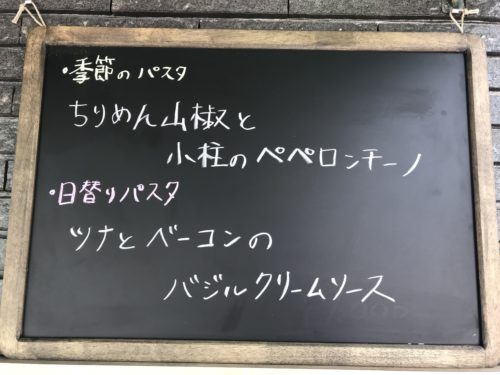 ・季節のパスタ
ちりめん山椒と
小柱のペペロンチーノ
・日替りパスタ
ツナとベーコンの
バジルクリームソース